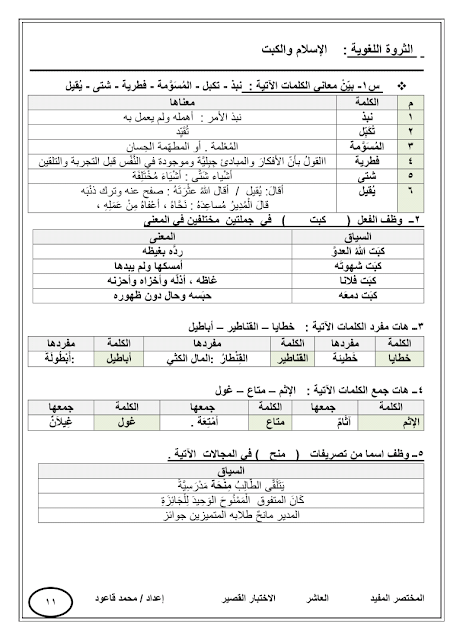 الثروة اللغوية : الإسلام والكبت
❖ س١- بيّنْ معاني الكلمات الآتية : نبذ - تكبل - المُسَوَّمة - فطرية - شتى - يُقيل
م الكلمة معناها
١ نبذ نبذ الأمر : أهمله ولم يعمل به
٢ تُكبّل تُقيّد
٣ المُسوَّمة المُعْلمة . أو المطهّمة الحسان
٤ فطرية االقولُ بأنّ الأفكارَ والمبادئَ جِبِلِيَّة وموجودة في النَّفْس قبل التجربة والتلقين
٥ شتى أشْياء شَتَّى : أشْيَاءُ مُخْتَلَفَة
٦ يُقيل أقالَ: يُقيل / أقال اللهُ عثرَتَهُ : صفح عنه وترك ذنْبَه
قالَ الْمُدِيرُ مُساعِدَهُ : نَحَّاهُ ، أعْفاهُ مِنْ عَمَلِهِ ،
٢ــ وظف الفعل ( كبت ) في جملتين مختلفين في المعنى
السياق المعنى
كبَت اللهُ العدوَّ ردَّه بغيظه
كبَت شهوته أمسكها ولم يبدها
كبَت فلانا غاظه ، أذلَّه وأخزاه وأحزنه
كبَت دمعَه حبَسه وحال دون ظهوره
٣ــ هات مفرد الكلمات الآتية : خطايا – القناطير – أباطيل
الكلمة مفردها الكلمة مفردها الكلمة مفردها
خطايا خَطيئة القناطير القِنْطارُ :المال الكثي أباطيل :أبْطُولَة
٤ــ هات جمع الكلمات الآتية : الإثم – متاع – غول
الكلمة جمعها الكلمة جمعها الكلمة جمعها
الإثم آثامٌ متاع أمْتِعَة . غول غِيلانٌ
٥ــ وظف اسما من تصريفات ( منح ) في المجالات الآتية .
السياق
يَتَلَقَّى الطَّالِبُ مِنْحَة مَدْرَسِيَّةً
كَانَ المتفوق الْمَمْنُوحَ الوَحِيدَ لِلْجَائِزَةِ
المدير مانحٌ طلابه المتميزين جوائز
المختصر المفيد العاشر الاختبار القصير إعداد / محمد قاعود ١١